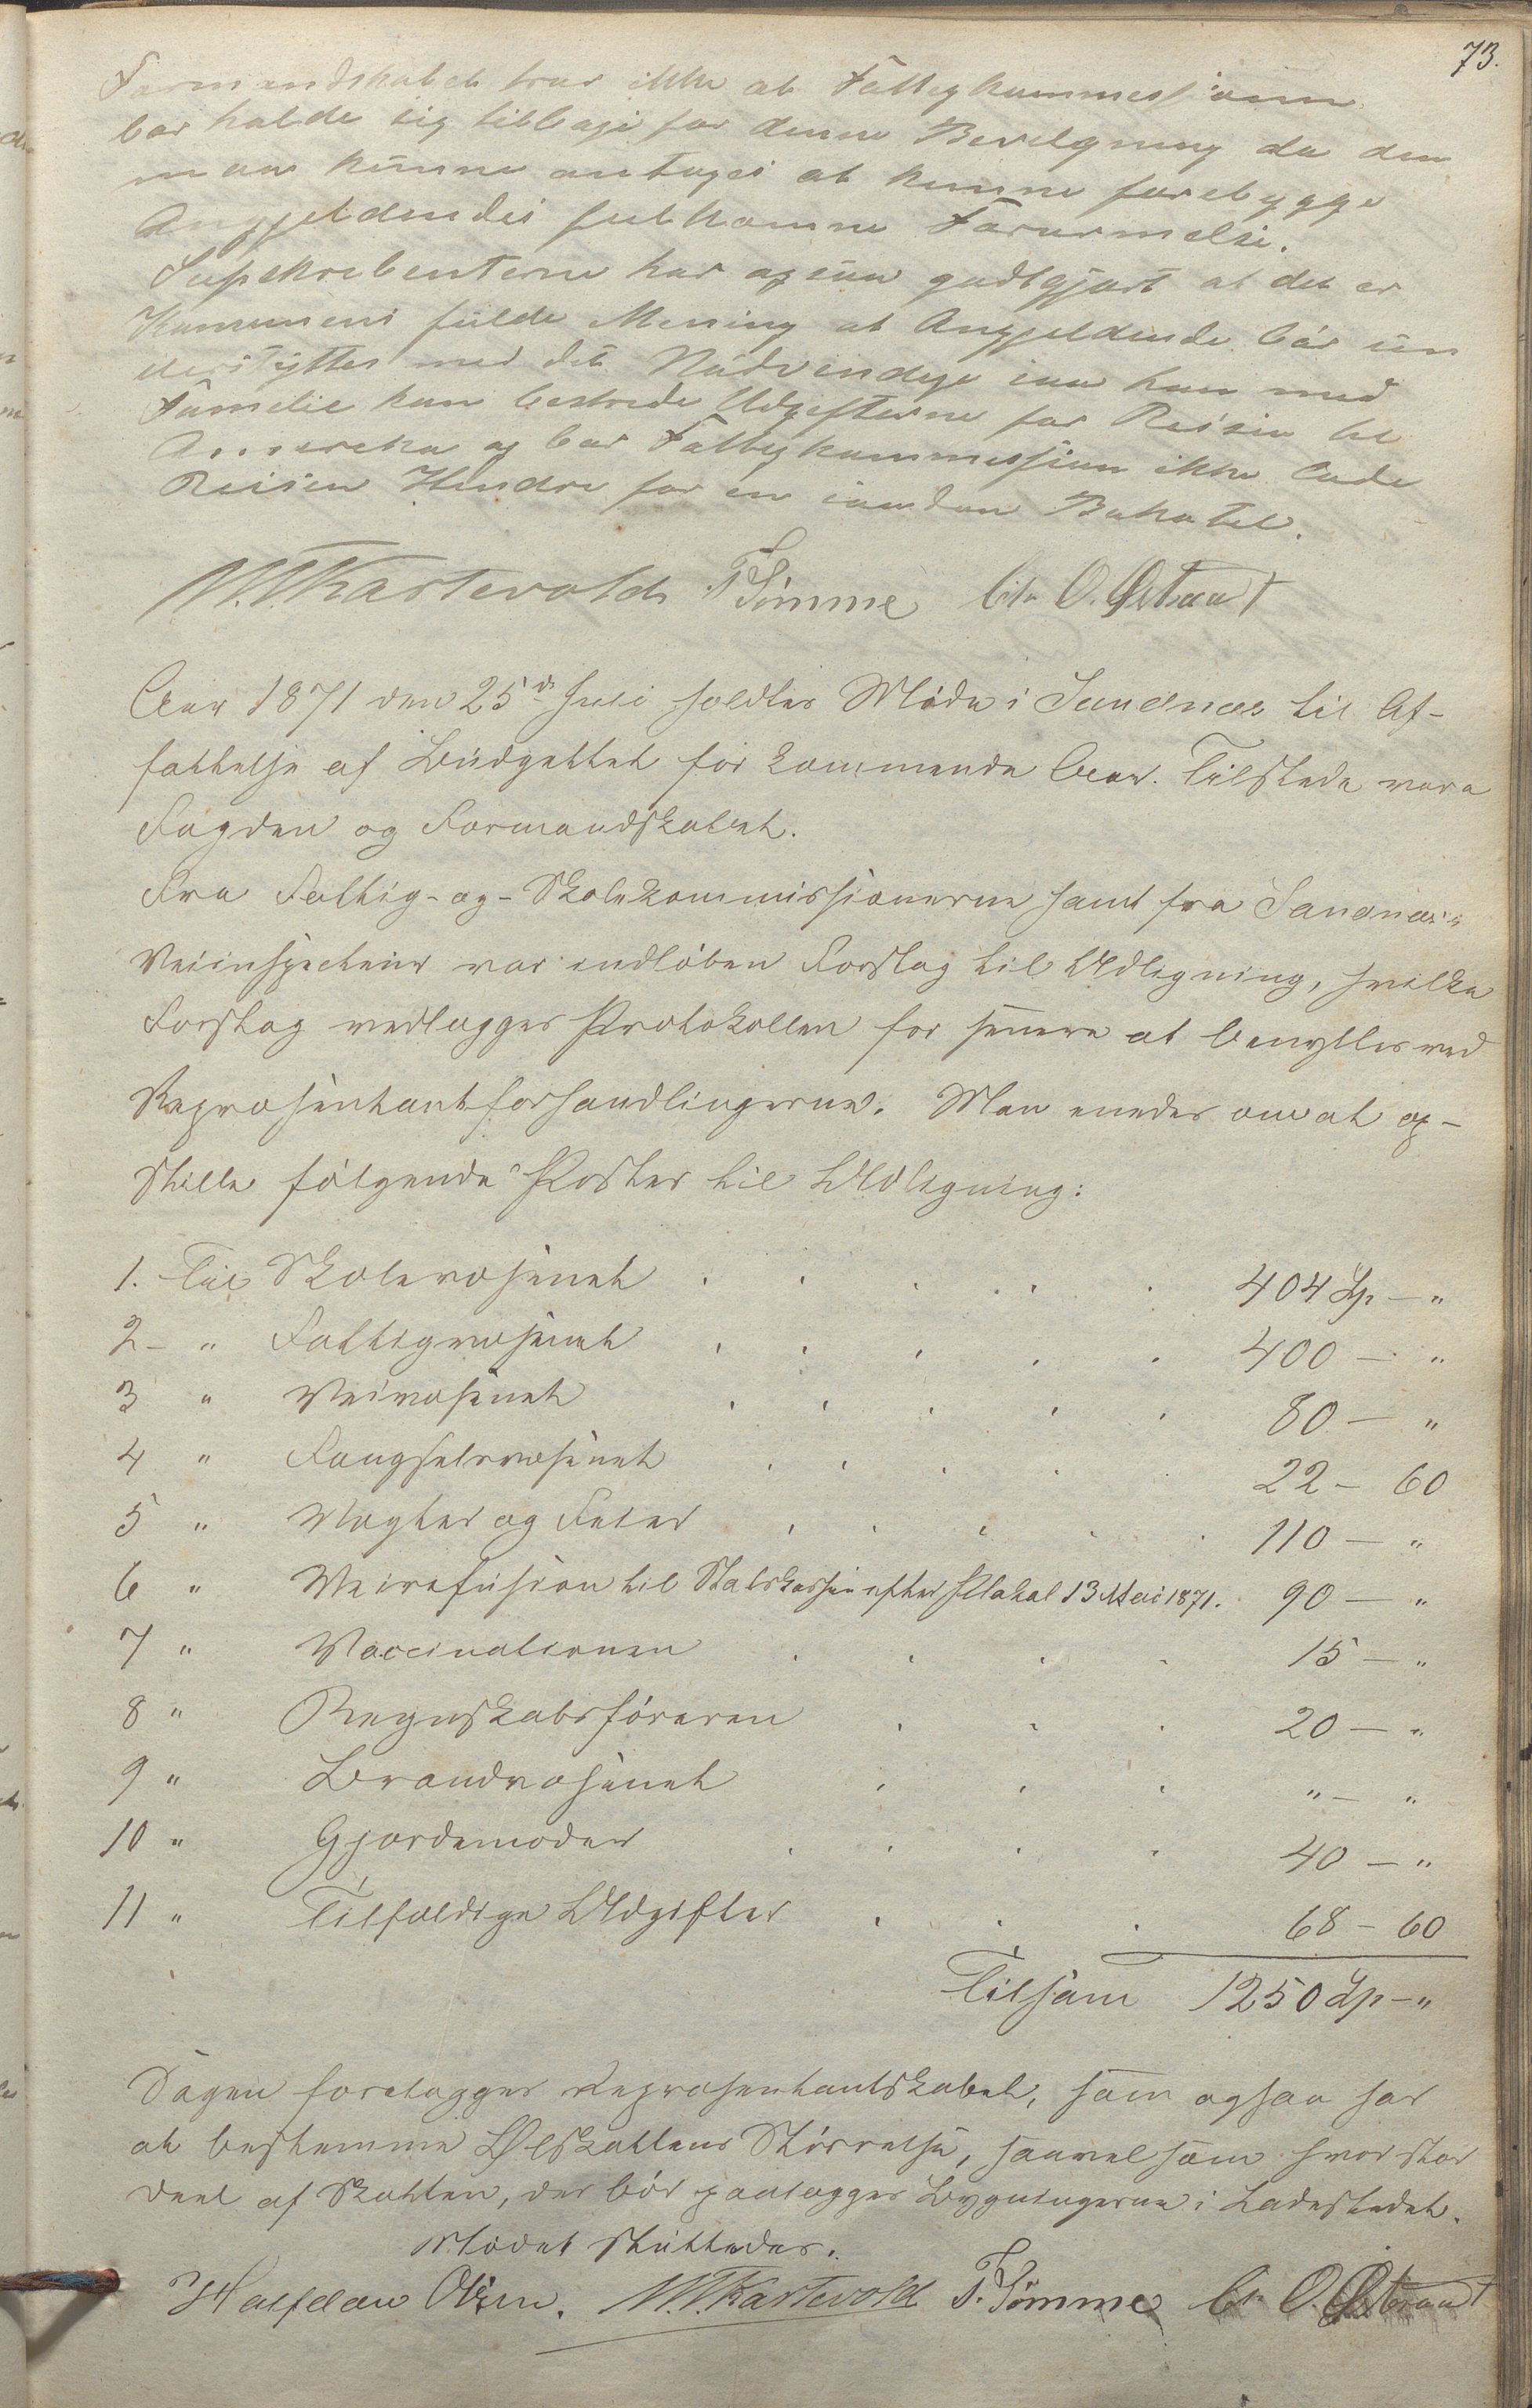 73.
Formandskabet tror ikke at Fattigkommissionen
bør holde sig tilbage for denne Bevilgning da den
maa kunne antages at kunne forebygge
Angjeldendes fuldkomne Forarmelse.
Supskrebenterne har ogsaa godtgjort at det er
Kommunens fulde Mening at Angjeldende bør un
derstøttes med det Nødvendige saa han med
Familie kan bestride Udgifterne for Reisen til
Amereka og bør Fattigkommissjonen ikke lade
Reisen Hindre for en saadan Bekostel.
M.T. Kastevold T Simme O. Østraat
Aar 1871 den 25de Juli holdtes Møde i Sandnæs til Af-
fattelse af Büdgettet for kommende Aar. Tilstede vare
Fogden og Formandskabet.
Fra Fattig- og Skolekommissionerne samt fra Sandnæs
Veiinspecteur var indløben Forslag til Udligning, hvilke
Forslag vedlægges Protokollen for senere at benyttes ved
Repræsentantforhandlingerne. Man enedes om at op-
stille følgende Poster til Udligning:
1. Til Skolevæsenet . . . . . 404 Sp - "
2 - " Fattigvæsenet . . . . . 400 - "
3 " Veivæsenet . . . . . 80 - "
4 " Fængselsvæsenet . . . . 22 - 60
5 " Vægter og Feier . . . . 110 - "
6 " Veirefusion til Statskassen efter Plakat 13 Mai 1871. 90 - "
7 " Vaccinationen . . . . 15 - "
8 " Regnskabsføreren . . . 20 - "
9 " Brandvæsenet . . . " - "
10 " Gjordemoder . . . . 40 - "
11 " Tilfældige Udgifter . . . 68 - 60
Tilsam 1250 Sp - "
Sagen forelægges Repræsentantskabet, som ogsaa har
at bestemme Ølskattens Størrelse, saavelsom hvor stor
Deel af Skatten, der bør paalægges Bygningerne i Ladestedet.
Mødet sluttedes.
Halfdan Olsen. M.T. Kastevold T. Simme O. Østraat